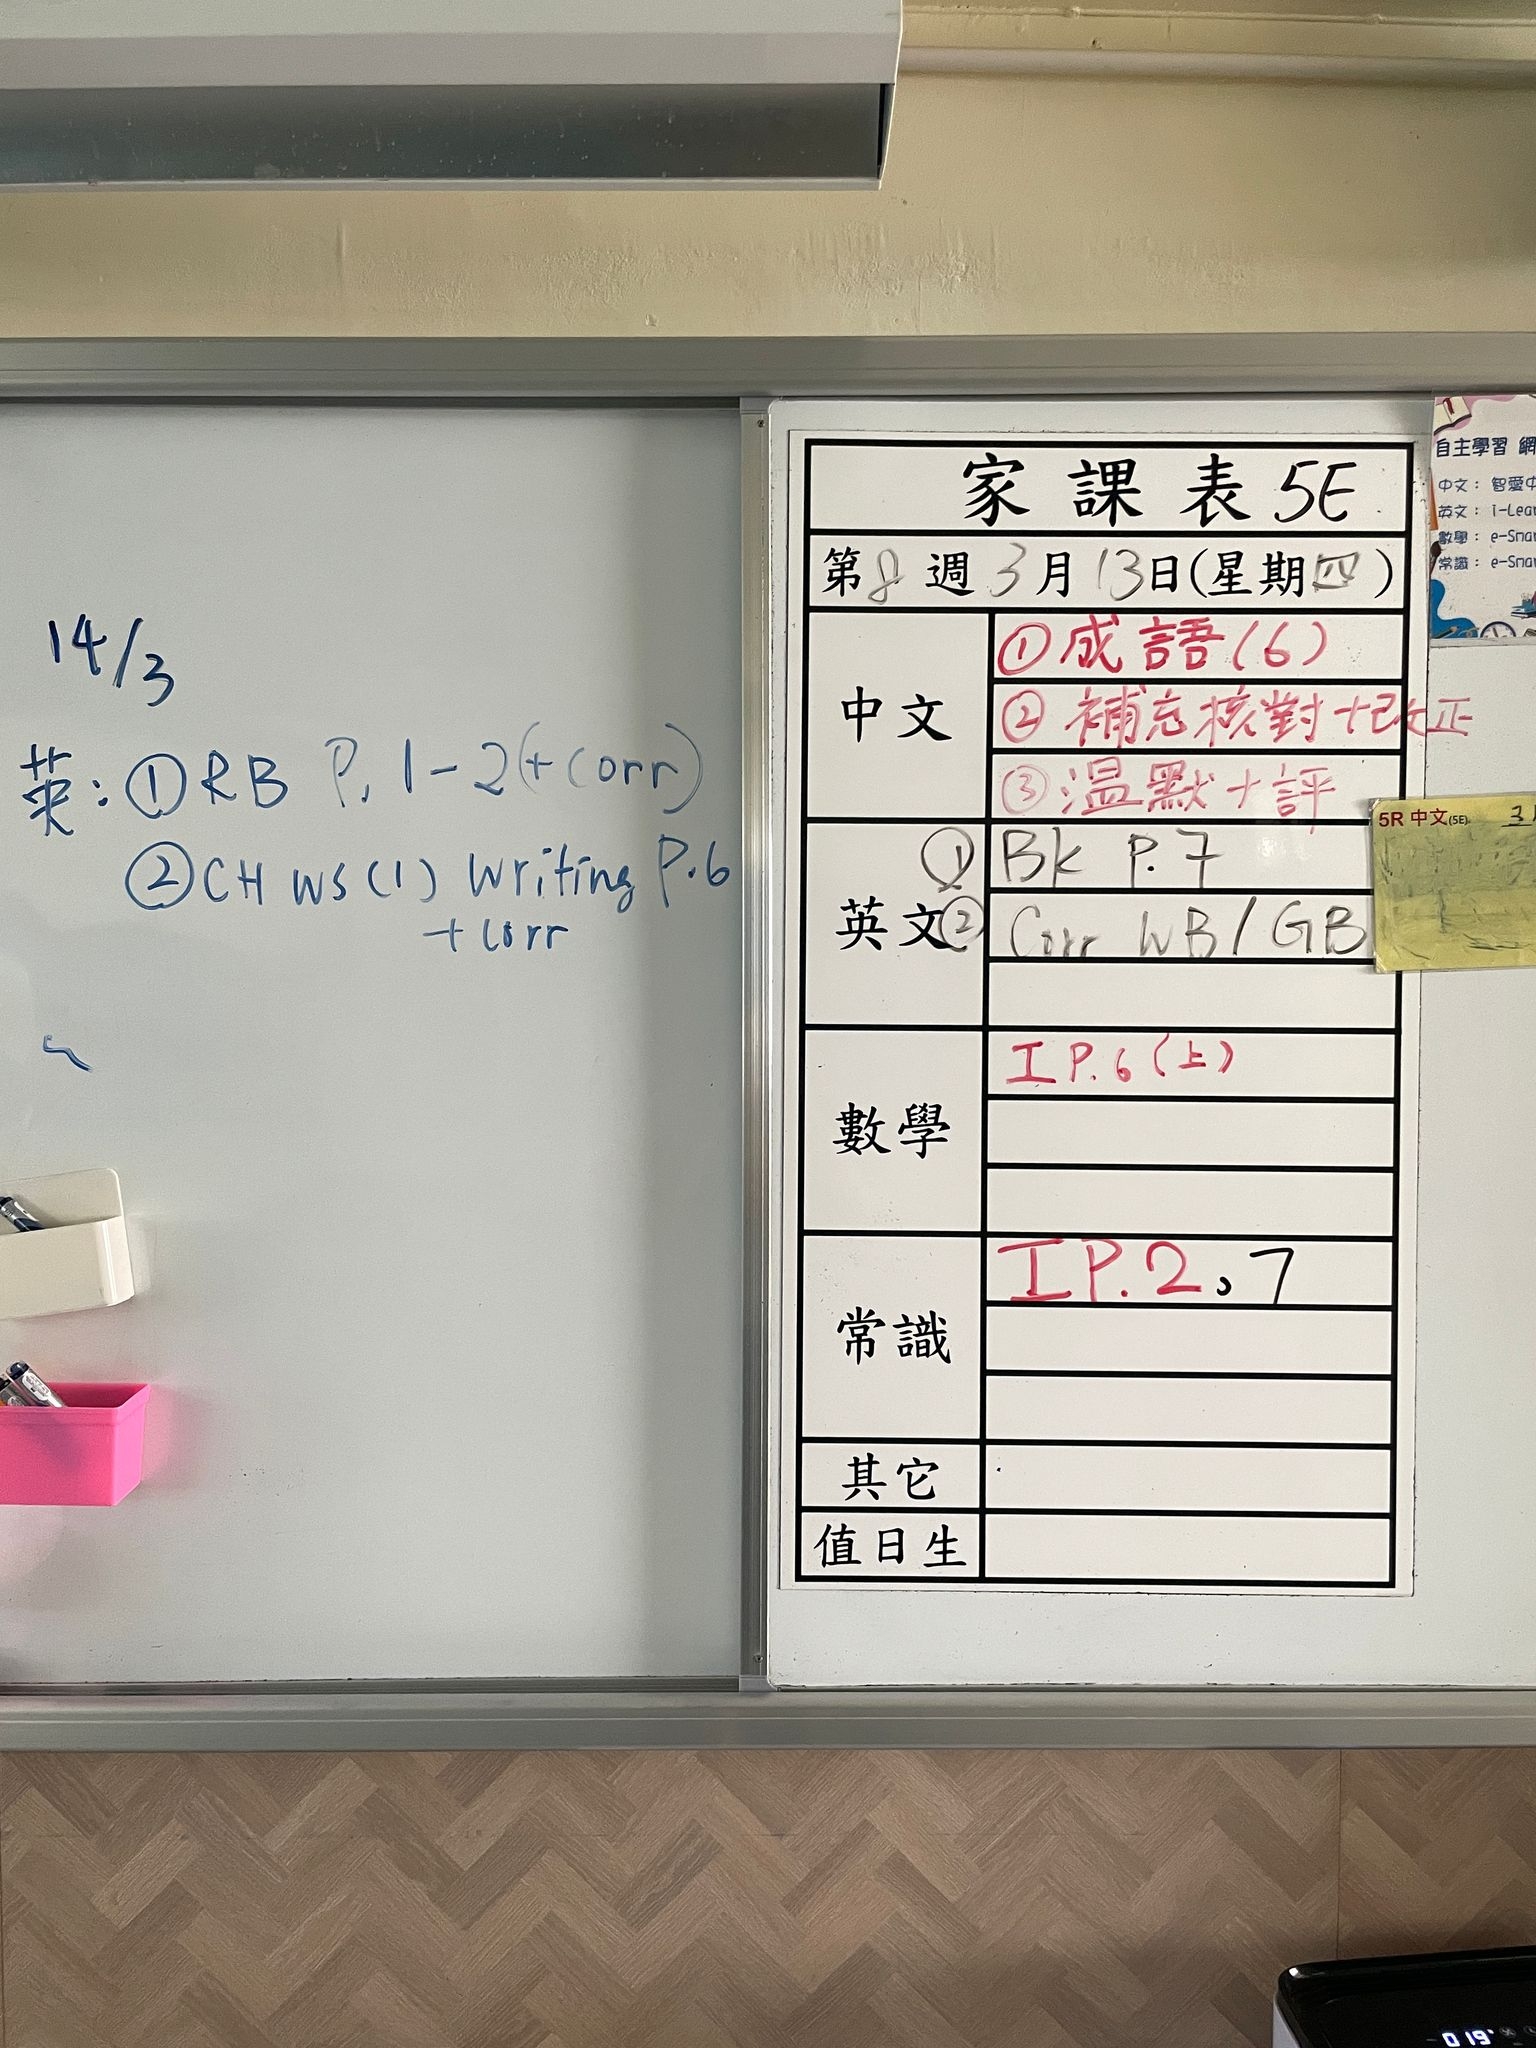 14/3
英：①RB P.1-2(+Corr)
②CH WS(1) Writing P.6
+Corr
家課表5E
第8週3月13日(星期四)
中文
①成語(6)
②補充核對+改正
③溫默+評
英文
①Bk P.7
②Corr WB/GB
數學
I P.6(上)
常識
I P.2、7
其它
值日生
自主學習 網
中文：智愛中
英文：i-Lear
數學：e-Smar
常識：e-Smar
5R 中文(5E) 3
019